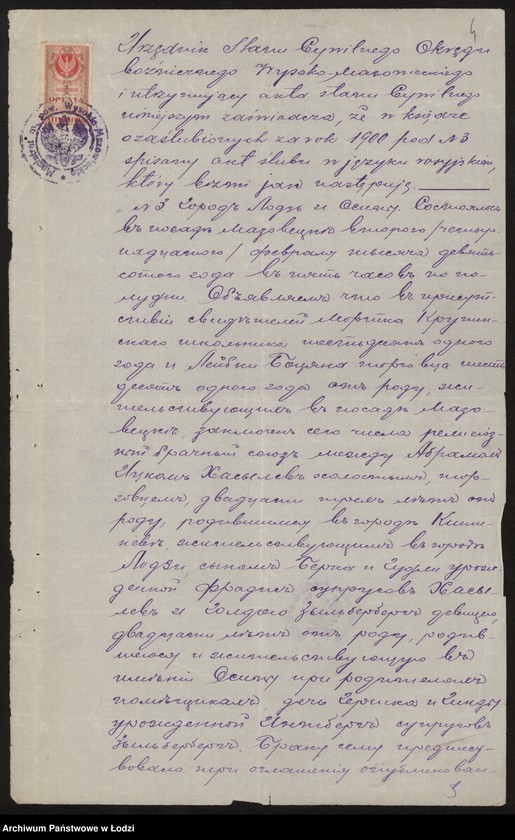 4
Urzędnik Stanu Cywilnego Okręgu
bóżniczego Wysoko-Mazowieckiego
i utrzymujący akta stanu Cywilnego
niniejszym zaświadcza, że w księdze
ozaślubionych za rok 1900 pod №3
spisany akt ślubu w języku rosyjskim,
który brzmi jak następuje.
„№3 Городъ Лодзь и Осипы. Состоялось
въ посадѣ Мазовецкѣ второго /четыр-
надцатого/ февраля тысяча девять-
сотого года въ пять часовъ по по-
лудни. Объявляемъ что въ присут-
ствіи свидѣтелей Мортка Кручин-
скаго школьника шестьдесятъ одного
года и Лейбки Боцяна торговца шесть
десятъ одного года отъ роду, жи-
тельствующихъ въ посадѣ Мазо-
вецкѣ, заключенъ сего числа религіоз-
ный брачный союзъ между Абрамомъ
Ицкомъ Хасылевъ холостымъ, тор-
говцемъ, двадцати трехъ лѣтъ отъ
роду, родившимся въ городѣ Киши-
невѣ, жительствующимъ въ городѣ
Лодзи, сыномъ Берка и Гудли урож-
денной Фрадисъ супруговъ Хасы-
левъ и Голдою Зыльбербергъ девицею,
двадцати лѣтъ отъ роду, родив-
шеюся и жительствующую въ
имѣніи Осипы при родителяхъ
помѣщикахъ, дочь Гершка и Гинды
урожденной Инжбергъ супруговъ
Зыльбербергъ. Браку сему предшес-
вовало три оглашенія опубликован-